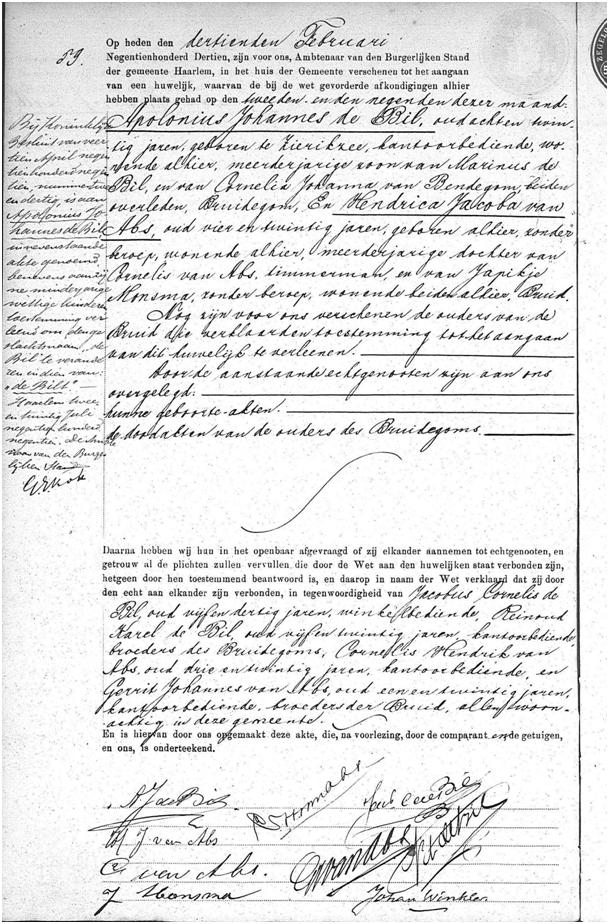 59.
Op heden den dertienden Februari
Negentienhonderd Dertien, zijn voor ons, Ambtenaar van den Burgerlijken Stand
der gemeente Haarlem, in het huis der Gemeente verschenen tot het aangaan
van een huwelijk, waarvan de bij de wet gevorderde afkondigingen alhier
hebben plaats gehad op den tweeden en den negenden dezer maand.
Apolonius Johannes de Bil, oud achten twin-
tig jaren, geboren te Zierikzee, kantoorbediende, wo-
nende alhier, meerderjarige zoon van Marinus de
Bil, en van Cornelia Johanna van Bendegom, beiden
overleden, Bruidegom, En Hendrica Jacoba van
Abs, oud vier en twintig jaren, geboren alhier, zonder
beroep, wonende alhier, meerderjarige dochter van
Cornelis van Abs, timmerman, en van Japikje
Monsma, zonder beroep, wonende beiden alhier, Bruid.
Nog zijn voor ons verschenen de ouders van de
Bruid die verklaarden toestemming tot het aangaan
van dit huwelijk te verleenen.
Door de aanstaande echtgenooten zijn aan ons
overgelegd:
hunne geboorte-akten.
de doodakten van de ouders des Bruidegoms.
Bij Koninklijk
Besluit van veer-
tien April negen-
tienhonderd negen-
tien, nummer een
en dertig, is aan
Apolonius Jo-
hannes de Bil
in nevenstaande
akte genoemd
benevens aan zij-
ne minderjarige
wettige kinderen
toestemming ver-
leend om den ge-
slachtsnaam "de
Bil" te verande-
ren in dien van:
"de Bilt".—
Haarlem twee
en twintig Juli
negentien honderd
negentien. De Ambte-
naar van den Burger-
lijken Stand
Daarna hebben wij hun in het openbaar afgevraagd of zij elkander aannemen tot echtgenooten, en
getrouw al de plichten zullen vervullen, die door de Wet aan den huwelijken staat verbonden zijn,
hetgeen door hen toestemmend beantwoord is, en daarop in naam der Wet verklaard dat zij door
den echt aan elkander zijn verbonden, in tegenwoordigheid van Jacobus Cornelis de
Bil, oud vijf en dertig jaren, winkelbediende, Reinoud
Karel de Bil, oud vijf en twintig jaren, kantoorbediende,
broeders des Bruidegoms, Cornelis Hendrik van
Abs, oud drie en twintig jaren, kantoorbediende, en
Gerrit Johannes van Abs, oud een en twintig jaren,
kantoorbediende, broeders der Bruid, allen woon-
achtig in deze gemeente.
En is hiervan door ons opgemaakt deze akte, die, na voorlezing, door de comparanten en de getuigen,
en ons, is onderteekend.
A J de Bil
H. J. van Abs
C van Abs.
J Monsma
Johan Winkler